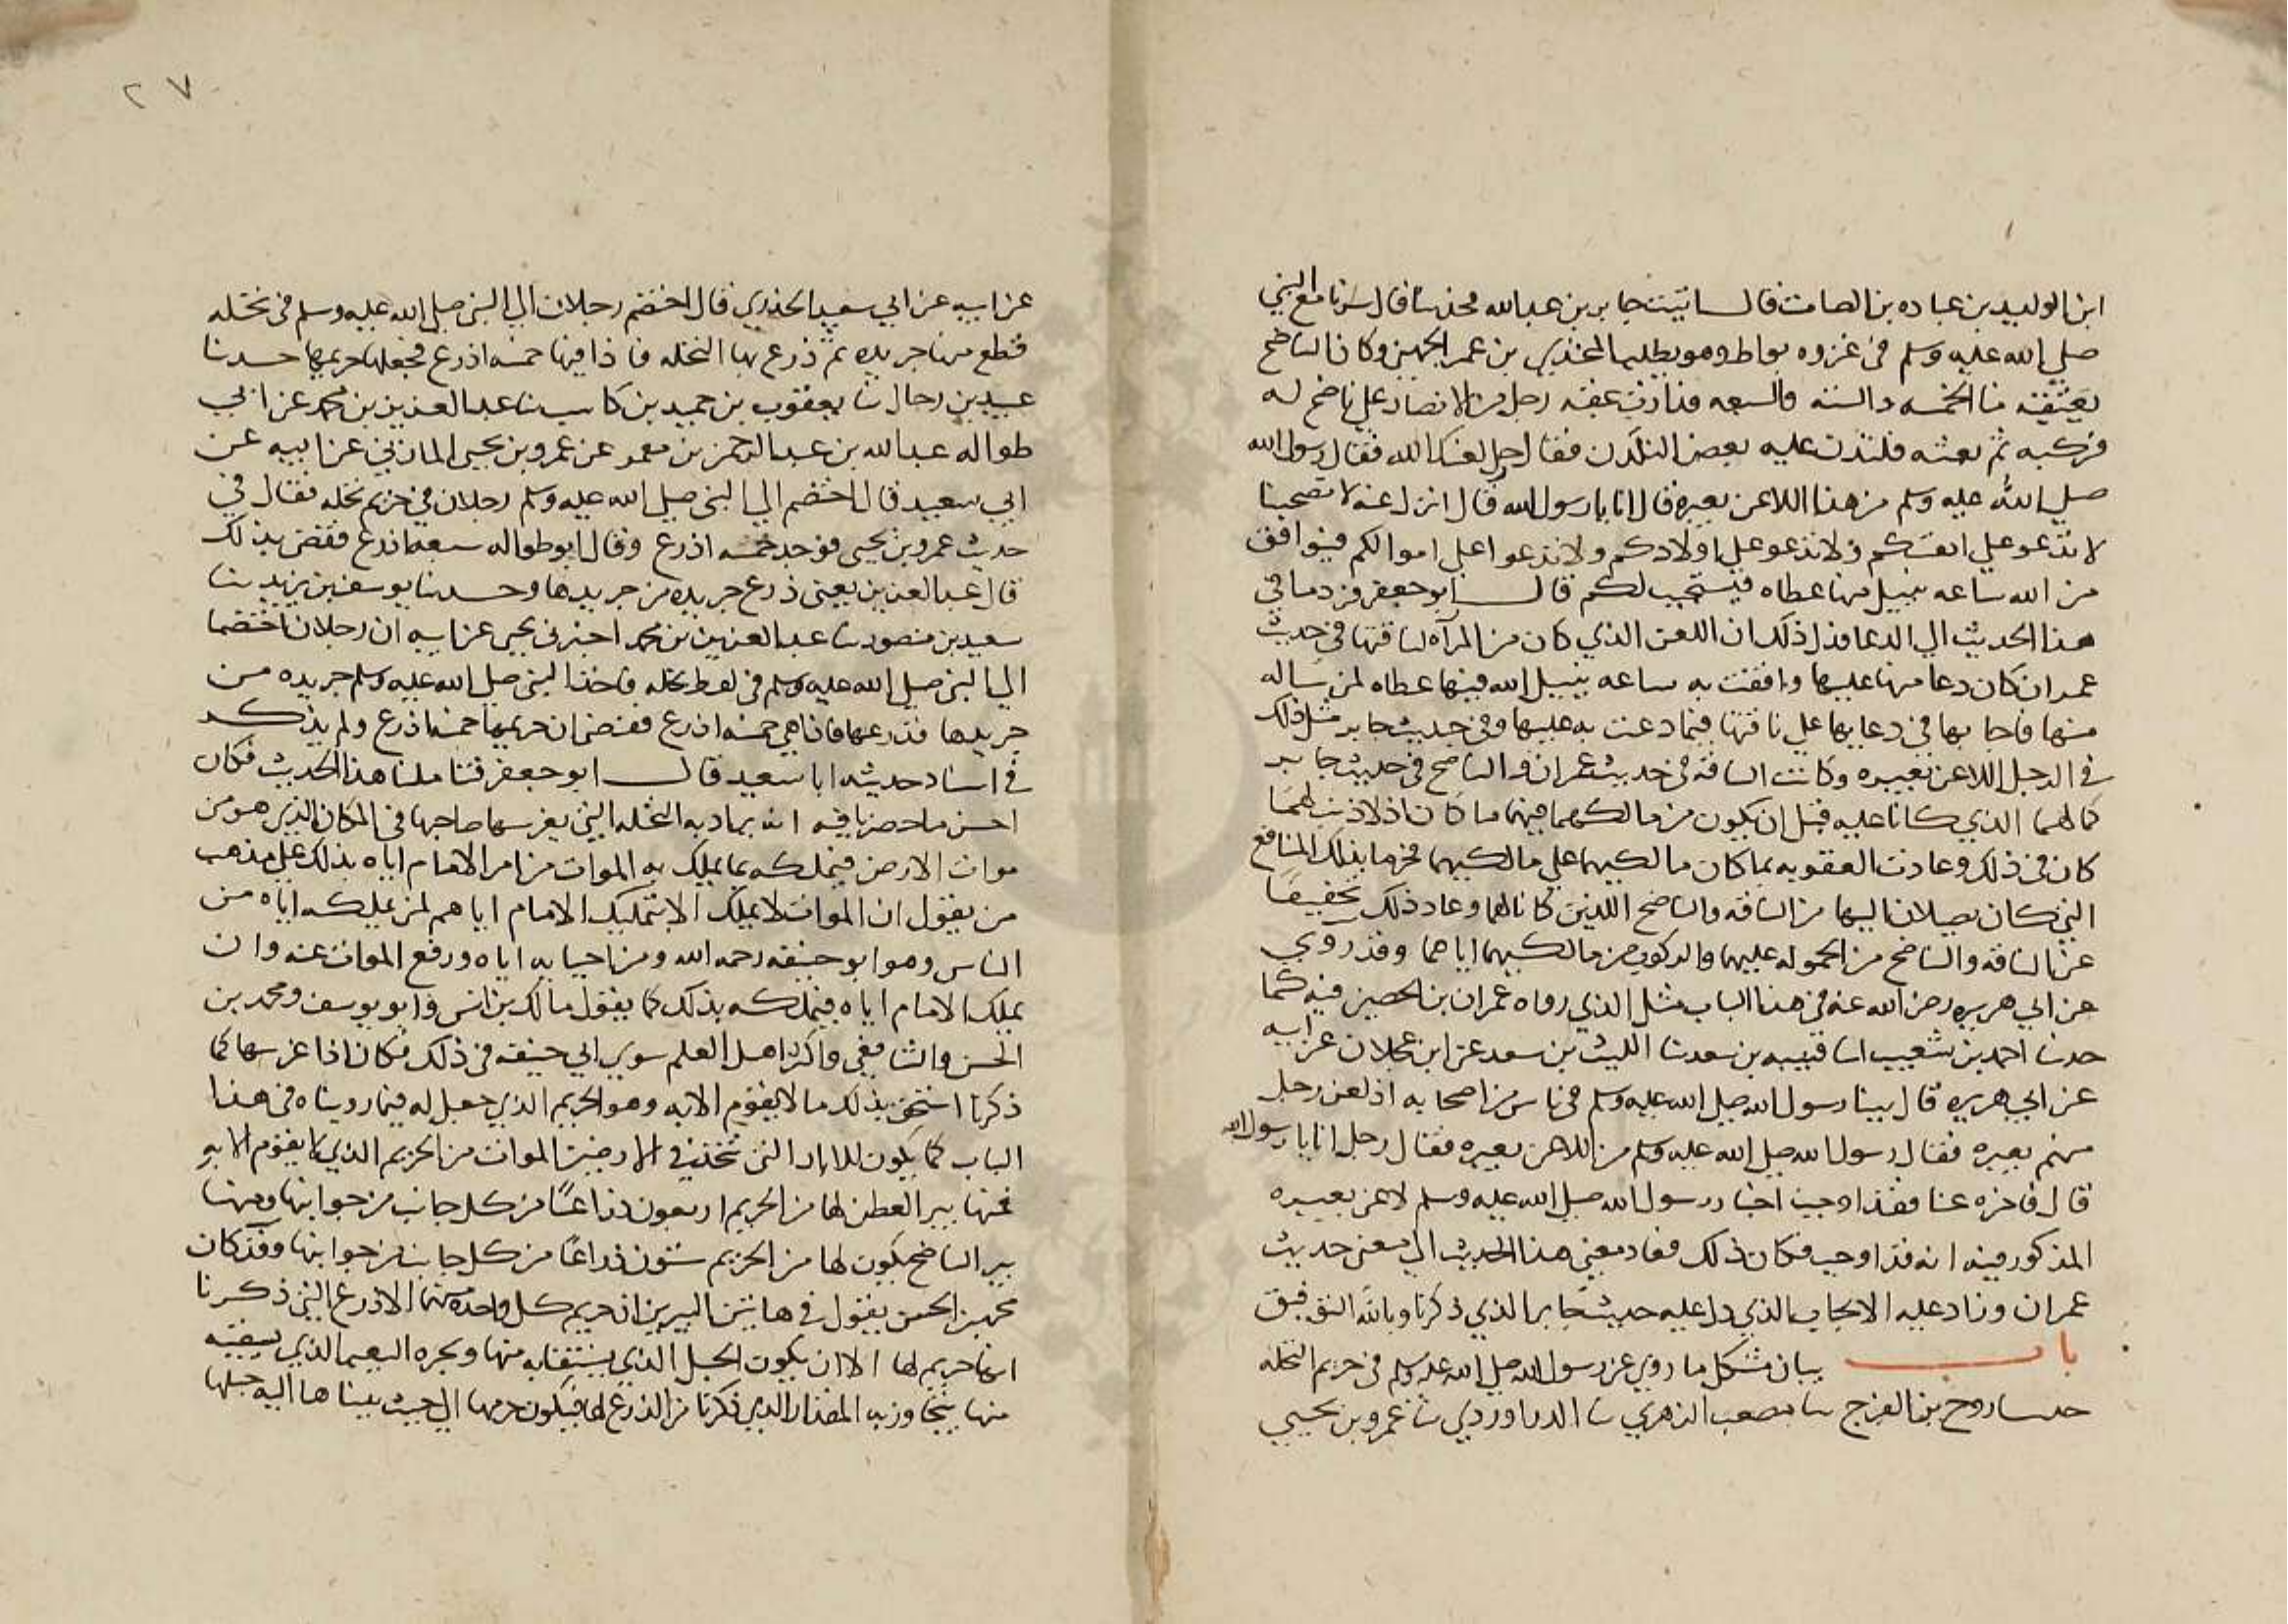 ابن الوليد بن عباده بن الصامت قال اتيت جابر بن عبدالله فحدثنا قال سرنا مع النبي
صلى الله عليه وسلم في غزوه بواط وهو يطلب المجدي بن عمر الجهني وكان الناضح
يعتقبه منا الخمسه والسته والسبعه فدارت عقبه رجل من الانصار على ناضح له
فركبه ثم بعثه فتلدن عليه بعض التلدن فقال حل لعنك الله فقال رسول الله
صلى الله عليه وسلم من هذا اللاعن بعيره قال انا يا رسول الله قال انزل عنه لا تصحبنا
لا تدعو على انفسكم ولا تدعو على اولادكم ولا تدعوا على اموالكم فيوافق
من الله ساعه نيل منها عطاه فيستجيب لكم قال ابو جعفر فرد ما في
هذا الحديث الى الدعا فدل ذلك ان اللعن الذي كان من المرآه لناقتها في حديث
عمران كان دعا منها عليها وافقت به ساعه ينيل الله فيها عطاه لمن ساله
منها فاجابها في دعايها على ناقتها فيما دعت به عليها وفي حديث جابر مثل ذلك
في الرجل اللاعن بعيره وكانت الناقه في حديث عمران والناضح في حديث جابر
كالهما الذي كانا عليه قبل ان يكون من مالكهما فيهما ما كان اذ لا ذنب لهما
كان في ذلك وعادت العقوبه بما كان مالكيهما على مالكيهما فحرما بذلك المنافع
التي كان يصلان اليها من الناقه والناضح اللذين كانا لهما وعاد ذلك تخفيفا
عن الناقه والناضح من الحموله عليهما والركوب من مالكيهما اياهما وقد روي
عن ابي هريره رضي الله عنه في هذا الباب مثل الذي رواه عمران بن الحصين فيه كما
حدثنا احمد بن شعيب انا قتيبه بن سعد نا الليث بن سعد عن ابن عجلان عن ابيه
عن ابي هريره قال بينا رسول الله صلى الله عليه وسلم في ناس من اصحابه اذ لعن رجل
منهم بعيره فقال رسول الله صلى الله عليه وسلم من اللاعن بعيره فقال رجل انا يا رسول الله
قال فاخره عنا فقد اوجبت اخبار رسول الله صلى الله عليه وسلم لاعن بعيره
المذكور فيه انه قد اوجب فكان ذلك فعاد معنى هذا الحديث الى معنى حديث
عمران وزاد عليه الايجاب الذي دل عليه حديث جابر الذي ذكرنا وبالله التوفيق
باب بيان مشكل ما روي عن رسول الله صلى الله عليه وسلم في حريم النخله
حدثنا روح بن الفرج نا مصعب الزهري نا الدراوردي نا عمرو بن يحيى
٢٧
عن ابيه عن ابي سعيد الخدري قال اختصم رجلان الى النبي صلى الله عليه وسلم في نخله
فقطع منها جريده ثم ذرع بها النخله فاذا فيها خمسه اذرع فجعلها حريمها حدثنا
عبيد بن رجال نا يعقوب بن حميد بن كاسب نا عبد العزيز بن محمد عن ابي
طواله عبد الله بن عبد الرحمن بن معمر عن عمرو بن يحيى المازني عن ابيه عن
ابي سعيد قال اختصم الى النبي صلى الله عليه وسلم رجلان في حريم نخله فقال في
حديث عمرو بن يحيى فوجد خمسه اذرع وقال ابو طواله سبعه اذرع فقضى بذلك
قال عبد العزيز يعني ذرع جريده من جريدها وحدثنا يوسف بن يزيد نا
سعيد بن منصور نا عبد العزيز بن محمد اخبرني يحيى عن ابيه ان رجلان اختصما
الى النبي صلى الله عليه وسلم في نخله فاخذ النبي صلى الله عليه وسلم جريده من
جريدها فذرعها فاذا هي خمسه اذرع فقضى ان حريمها خمسه اذرع ولم يذكر
في اسناد حديثه ابا سعيد قال ابو جعفر فتاملنا هذا الحديث فكان
احسن ما حضرنا فيه انه يراد به النخله التي يغرسها صاحبها في المكان الذي هو من
موات الارض فيملكه بما يملك به الموات من امر الامام اياه بذلك على مذهب
من يقول ان الموات لا يملك الا بتمليك الامام اياهم لمن يملكه اياه من
الناس وهو ابو حنيفه رحمه الله ومن احيا به اياه ورفع الموات عنه وان
يملك الامام اياه فيملكه بذلك كما يقول مالك بن انس وابو يوسف ومحمد بن
الحسن والشافعي واكثر اهل العلم سوى ابي حنيفه في ذلك فكان اذا غرسها كما
ذكرنا استحق بذلك ما لا يقوم الا به وهو الحريم الذي جعل له فيما رويناه في هذا
الباب كما يكون للابار التي تتخذ في الارضين الموات من الحريم الذي لا يقوم الا به
فمنها بير العطن لها من الحريم اربعون ذراعًا من كل جانب من جوانبها ومنها
بير الناضح يكون لها من الحريم ستون ذراعًا من كل جانب من جوانبها وقد كان
محمد بن الحسن يقول في هاتين البيرين ان حريم كل واحده منهما الاذرع التي ذكرنا
انها حريم لها الا ان يكون الحبل الذي يستقا به منها ويجره البعير الذي يسقيه
منها يتجاوز به المقدار الذي ذكرنا من الذرع لها فيكون حريمها الى حيث يبناها اليه حبلها